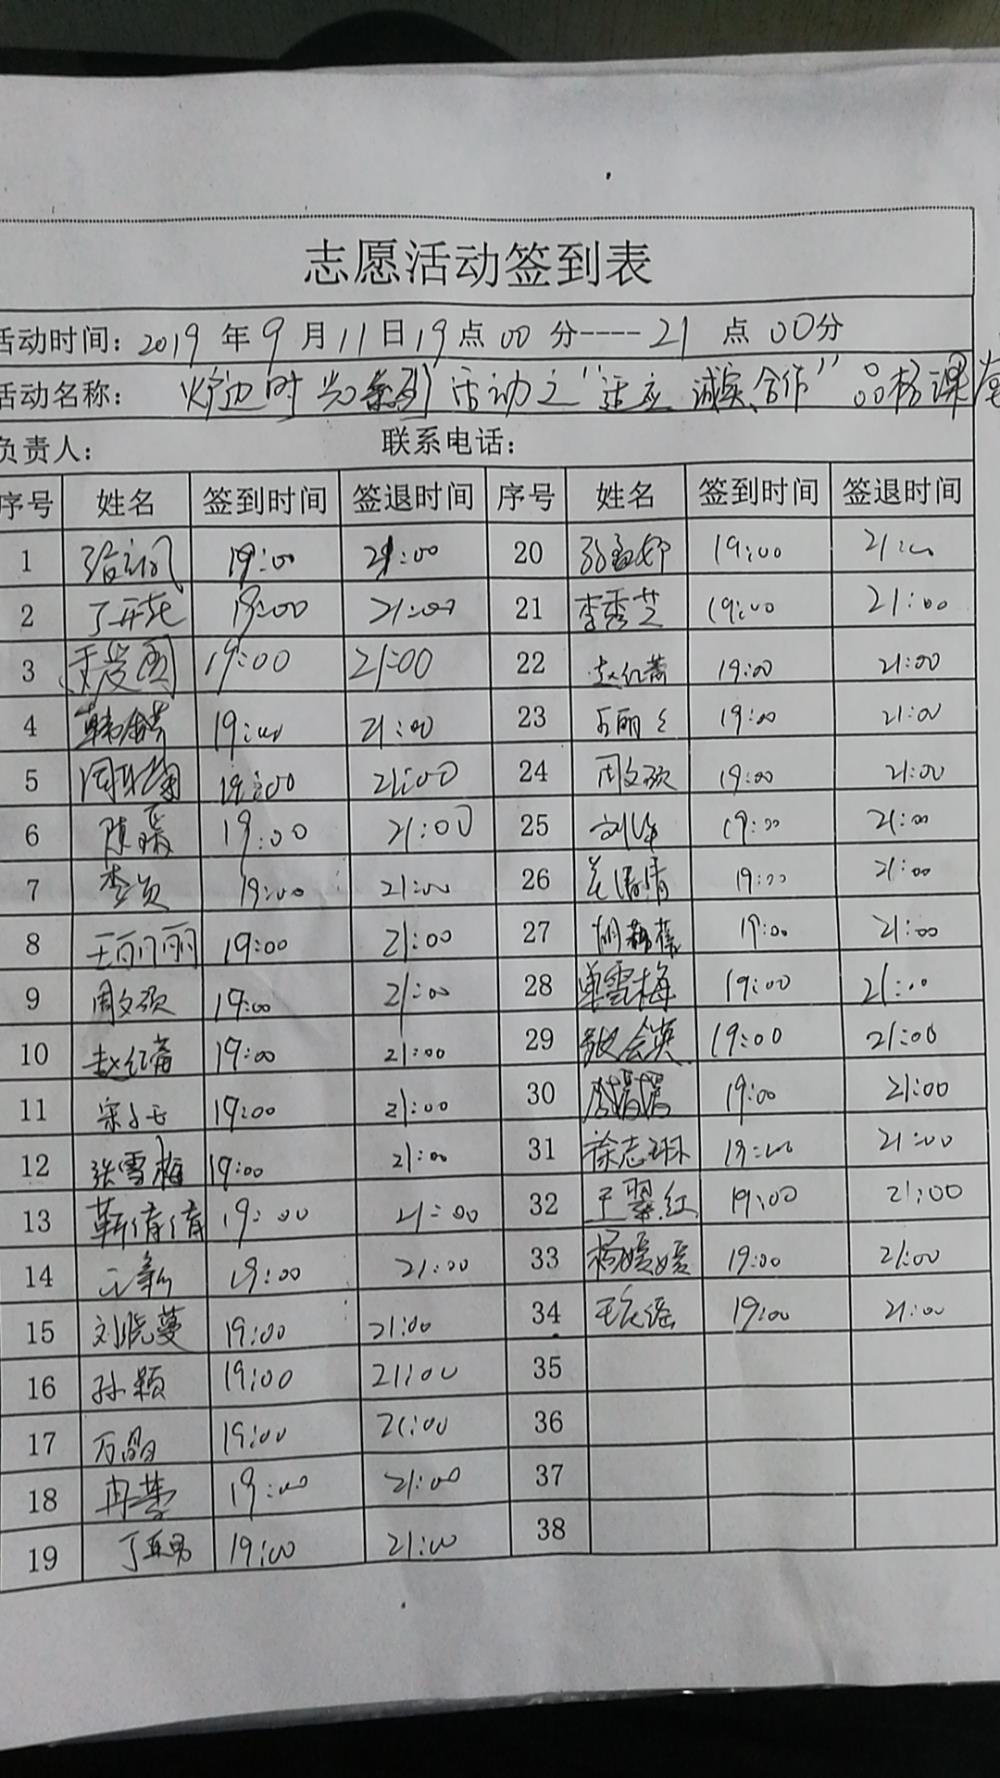 志愿活动签到表
活动时间：2019年9月11日19点00分----21点00分
活动名称：炉边时光系列活动之"适应 诚实 合作"品格课堂
负责人： 联系电话：
序号 姓名 签到时间 签退时间 序号 姓名 签到时间 签退时间
1 19:00 21:00 20 19:00 21:00
2 19:00 21:00 21 李秀芝 19:00 21:00
3 19:00 21:00 22 赵红蕾 19:00 21:00
4 19:00 21:00 23 19:00 21:00
5 19:00 21:00 24 周文颖 19:00 21:00
6 陈瑶 19:00 21:00 25 19:00 21:00
7 19:00 21:00 26 19:00 21:00
8 王丽丽 19:00 21:00 27 19:00 21:00
9 周文颖 19:00 21:00 28 单雪梅 19:00 21:00
10 赵红蕾 19:00 21:00 29 19:00 21:00
11 19:00 21:00 30 19:00 21:00
12 张雪梅 19:00 21:00 31 徐志琳 19:00 21:00
13 靳倩倩 19:00 21:00 32 于翠红 19:00 21:00
14 19:00 21:00 33 杨媛媛 19:00 21:00
15 刘晓蔓 19:00 21:00 34 19:00 21:00
16 孙颖 19:00 21:00 35
17 万晶 19:00 21:00 36
18 冉梦 19:00 21:00 37
19 19:00 21:00 38